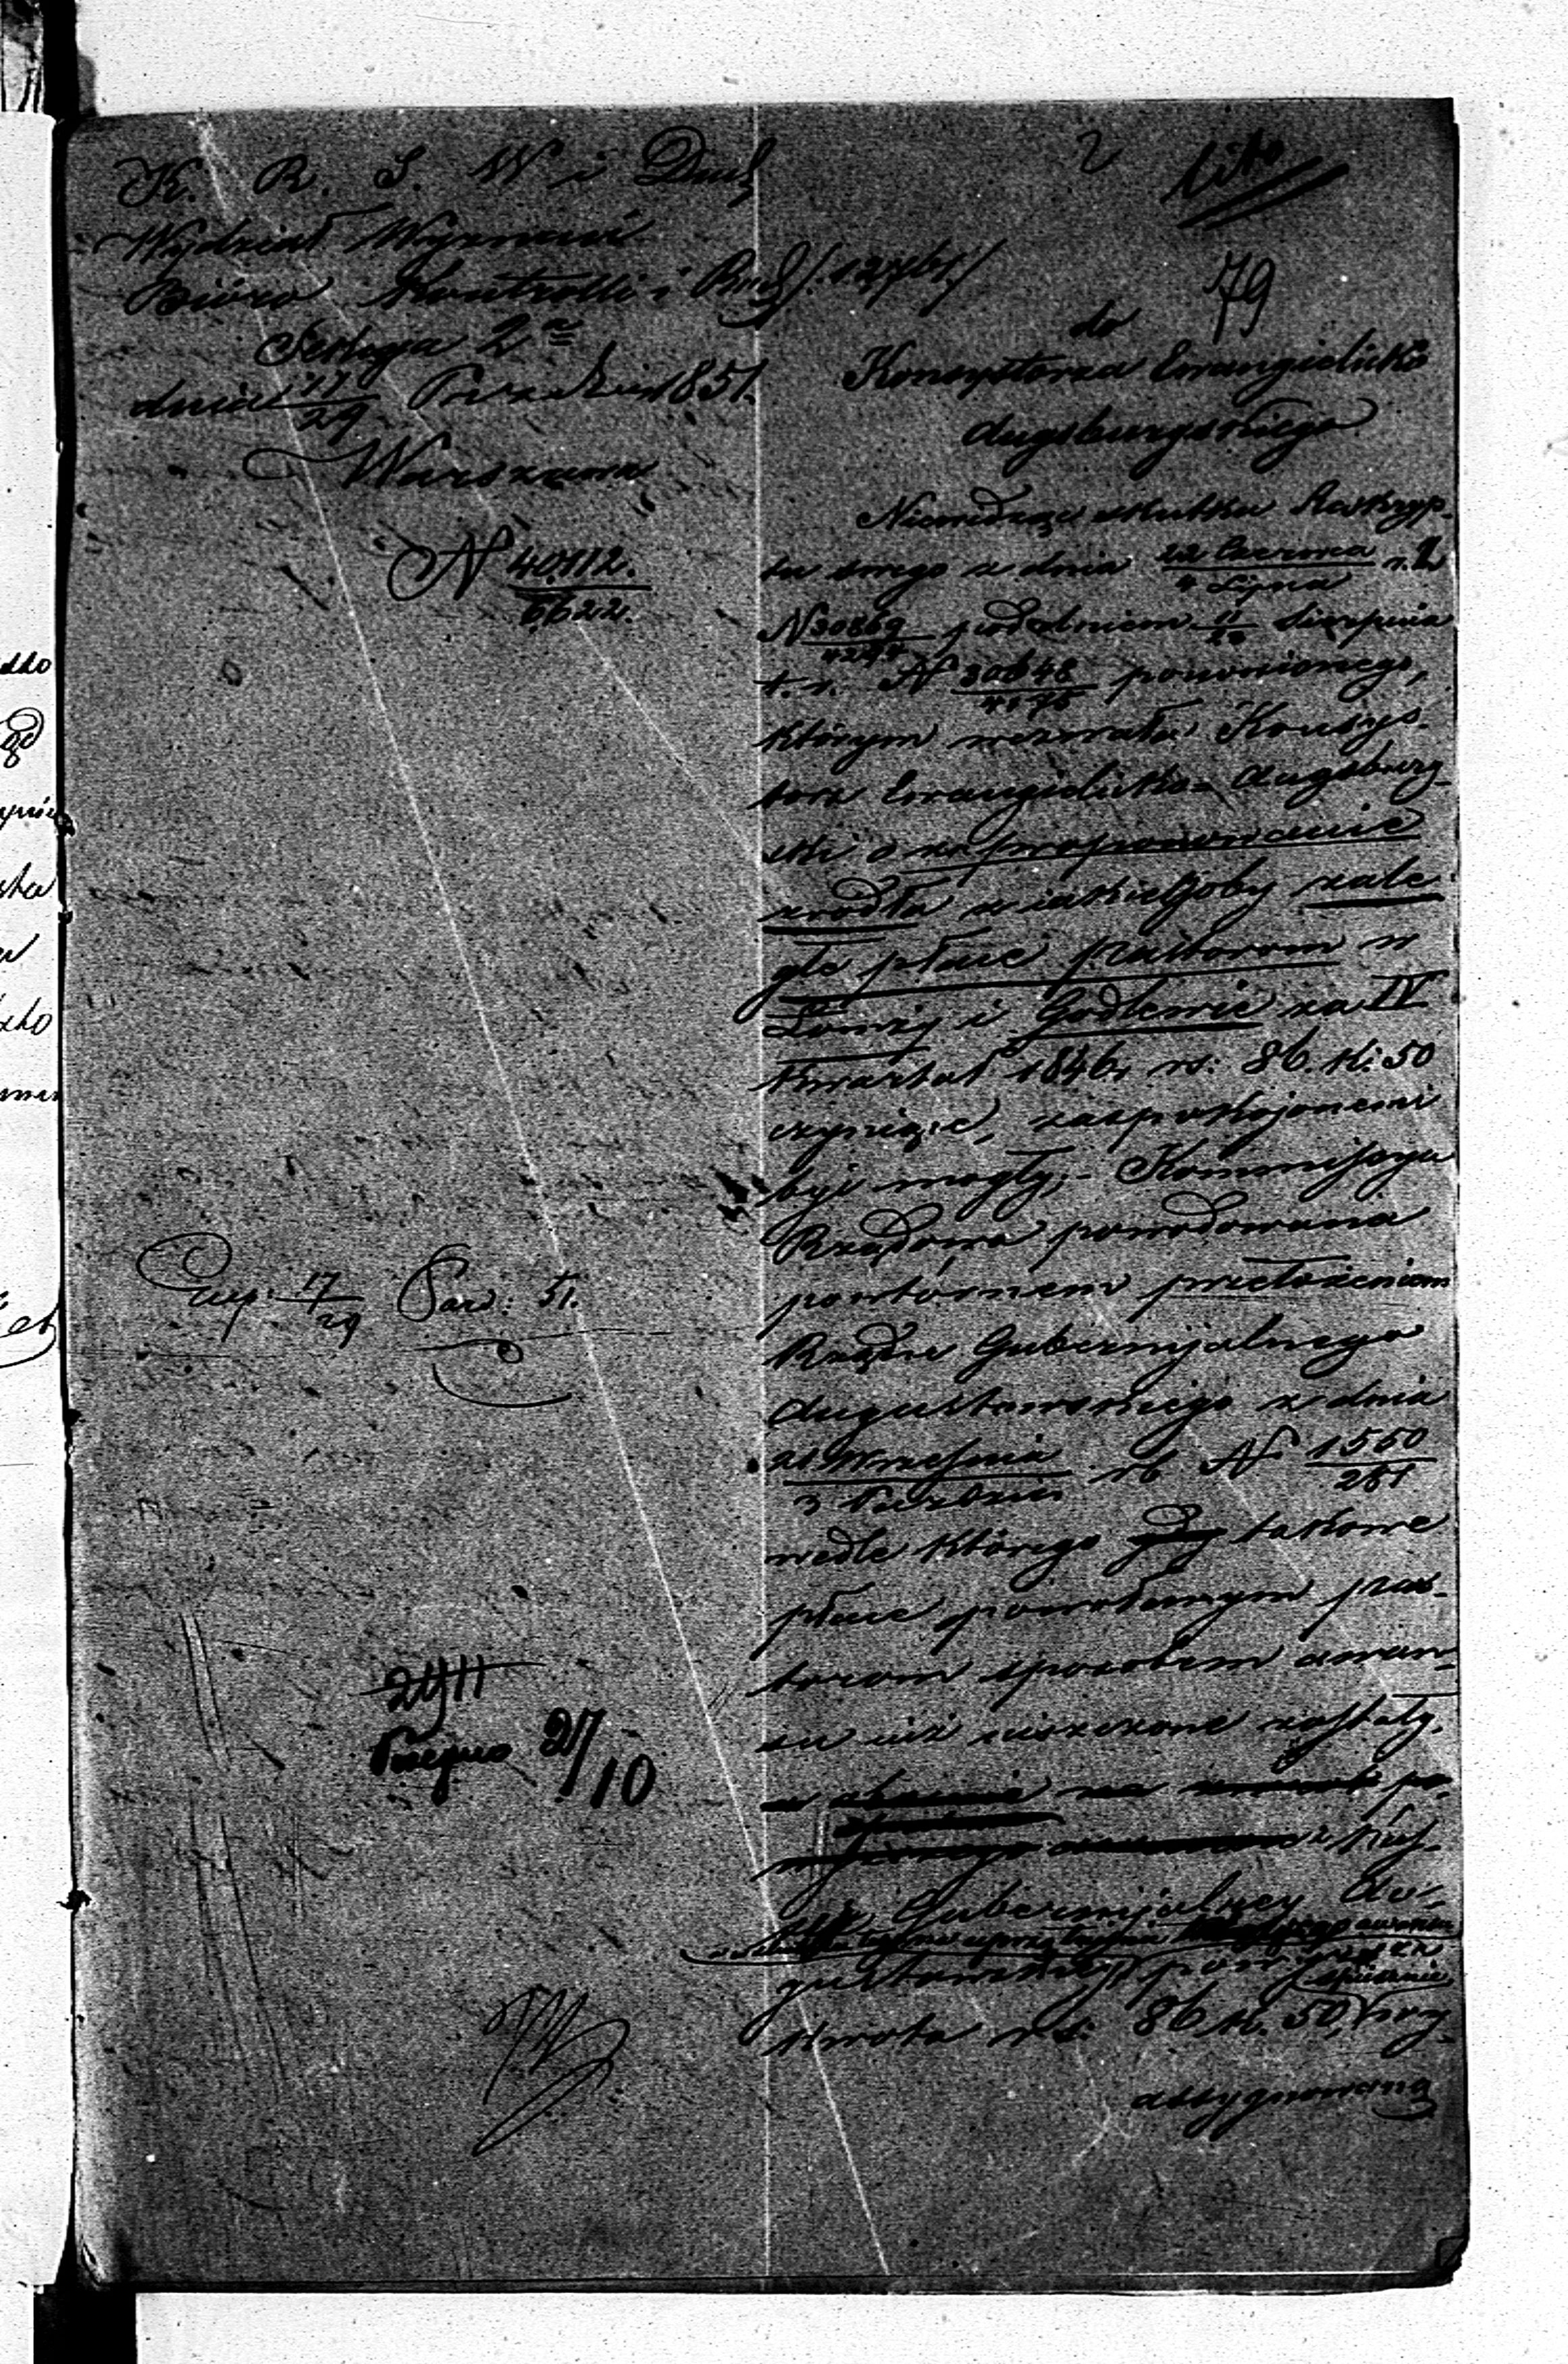 K. R. S. W i Duch
Wydział Wyznań
Bióro Kontrolli i Rach/.
Sekcya 2a
dnia 17/29 Paździer 1851.
Warszawa
N 40112./6622.
cito
79
do
Konsystorza Ewangielicko
Augsburgskiego
Niewidząc skutku Reskryp-
tu swego z dnia 22 Czerwca/4 Lipca r. b
N 30869 pod dniem 11/23 Sierpnia
t. r. N 30648 ponowionego,
którym wezwała Konsys-
torz Ewangielicko-Augsburg-
ski o zaproponowanie
zrodła z jakiegoby zale
głe płace pastorom w
Łomży i Godlewie za IV
Kwartał 1846, rs: 86. k: 50
czyniące, zaspokojonemi
być mogły, - Kommissya
Rządowa powodowana
powtórnem przełożeniem
Rządu Gubernijalnego
Augustowskiego z dnia
21 Września/3 Paździer rb N 1550/251
wedle którego takowe
płace powołanym pas-
torom sposobem awan-
su już uiszczone zostały,
Gubernijalney Au-
gustowskiey
kwota rs: 86 k. 50, wy-
assygnowaną
Exp: 17/29 Paźd: 51.
2911
27/10